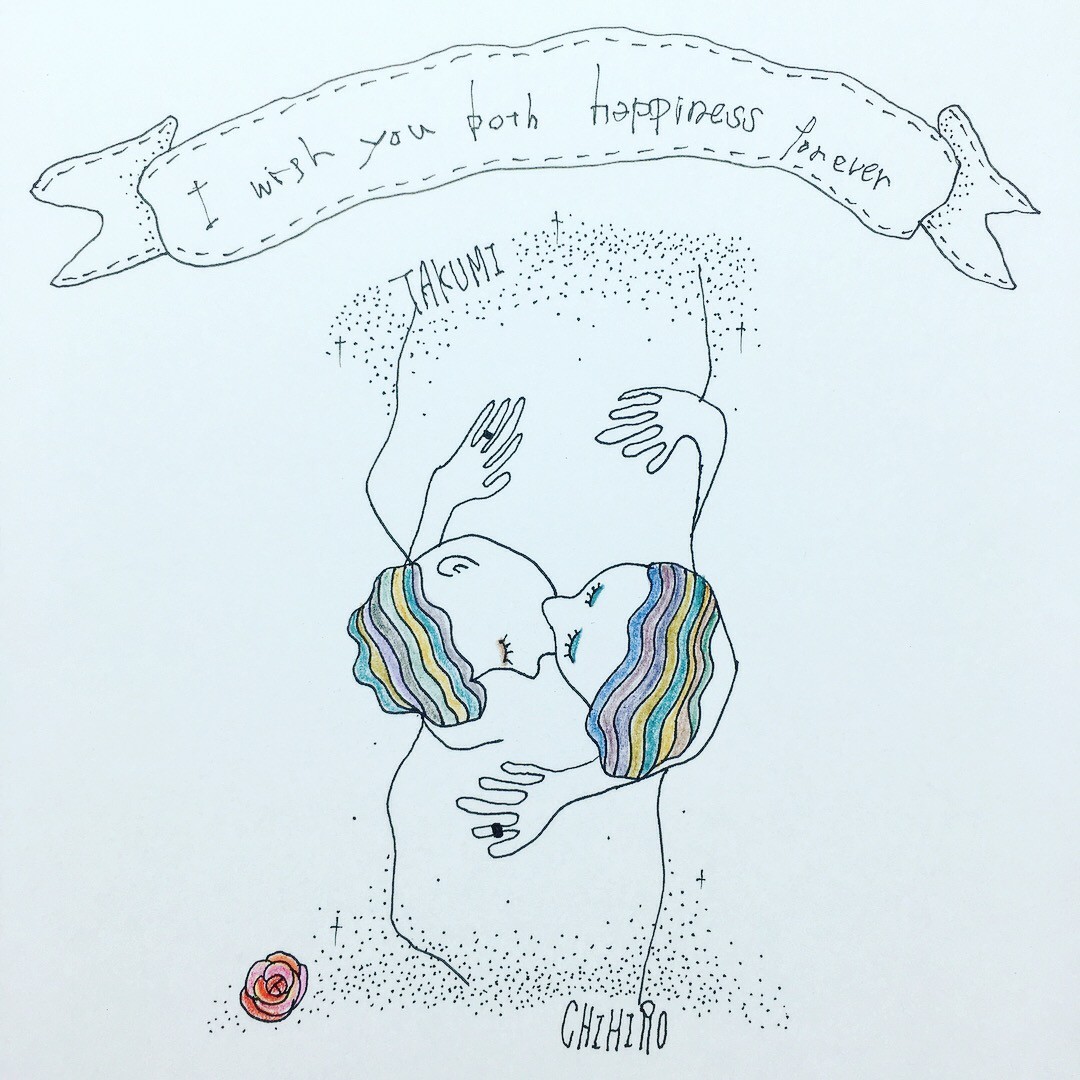 I wish you both happiness forever
TAKUMI
CHIHIRO